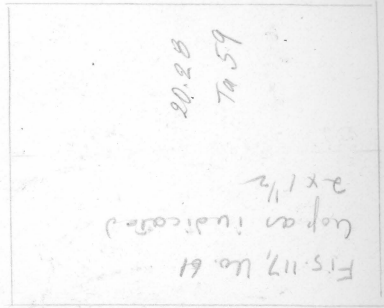 20.2B
Ta 59
Fig. 117, No. 61
(top as indicated)
2 x 1 1/2